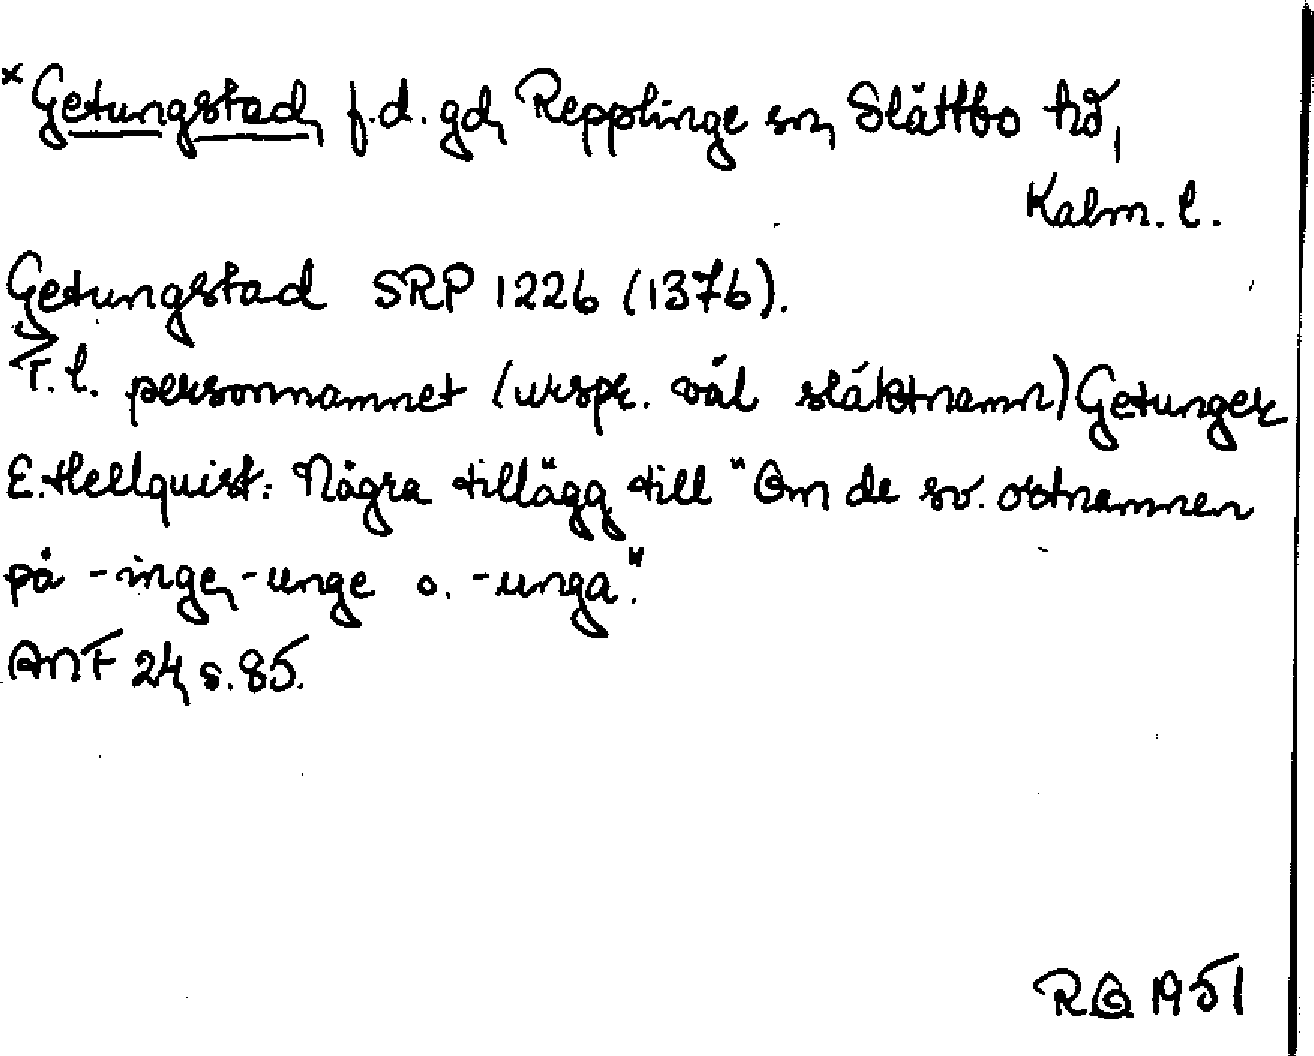 × Getungstad, f.d. gd, Repplinge sn, Slättbo hd,
Kalm. l.
Getungstad SRP 1226 (1376).
T. l. personnamnet (urspr. väl släktnamn) Getunger
E. Hellquist: Några tillägg till "Om de sv. ortnamnen
på -inge, -unge o. -unga".
ANF 24, s. 85.
RG 1951